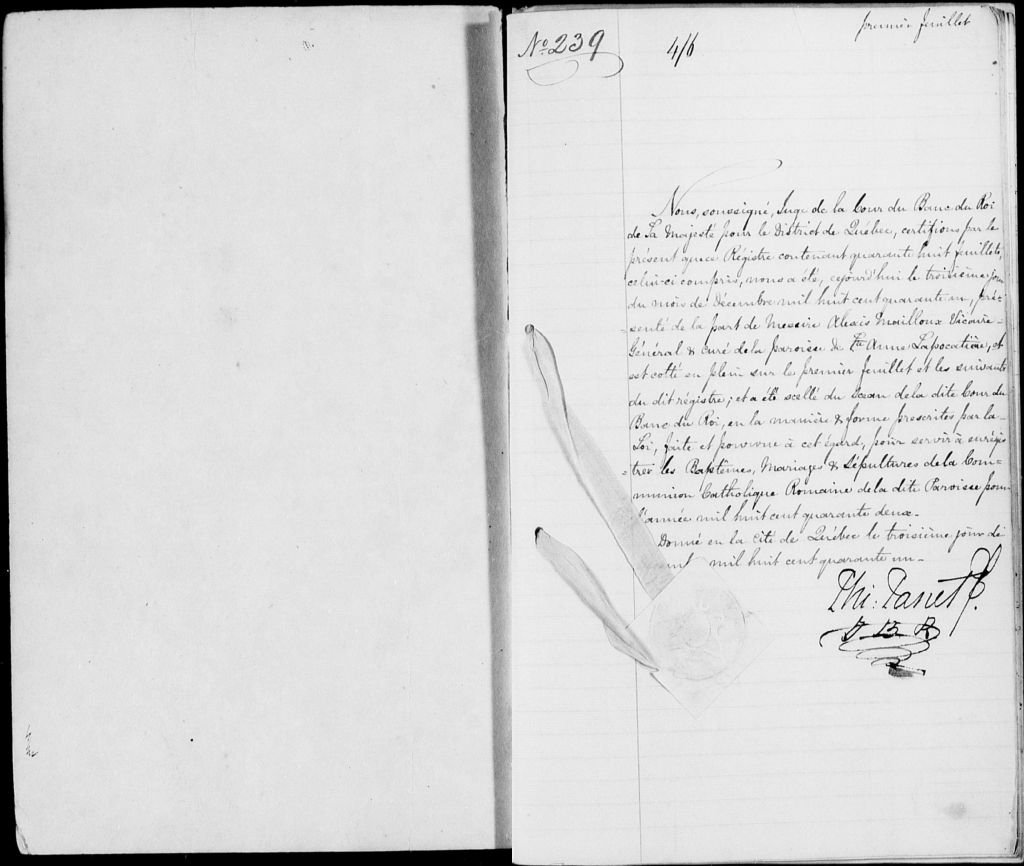 premier feuillet
No. 239
4/6
Nous, soussigné, Juge de la Cour du Banc du Roi
de Sa Majesté pour le District de Québec, certifions par le
présent que ce Régistre contenant quarante huit feuillets,
celui-ci compris, nous a été, cejourd'hui le troisième jour
du mois de Décembre mil huit cent quarante un, pré-
-senté de la part de Messire Alexis Mailloux Vicaire-
Général & curé de la paroisse de Ste Anne Lapocatière, et
est cotté en plein sur le premier feuillet et les suivants
du dit régistre; et a été scellé du Sceau de la dite Cour du
Banc du Roi, en la manière & forme prescrites par la
Loi, faite et pourvue à cet égard, pour servir à enrégis
-trer les Baptêmes, Mariages & Sépultures de la Com-
munion Catholique Romaine de la dite Paroisse pour
l'année mil huit cent quarante deux.
Donné en la Cité de Québec le troisième jour de
mil huit cent quarante un-
Phi: Panet
J B R